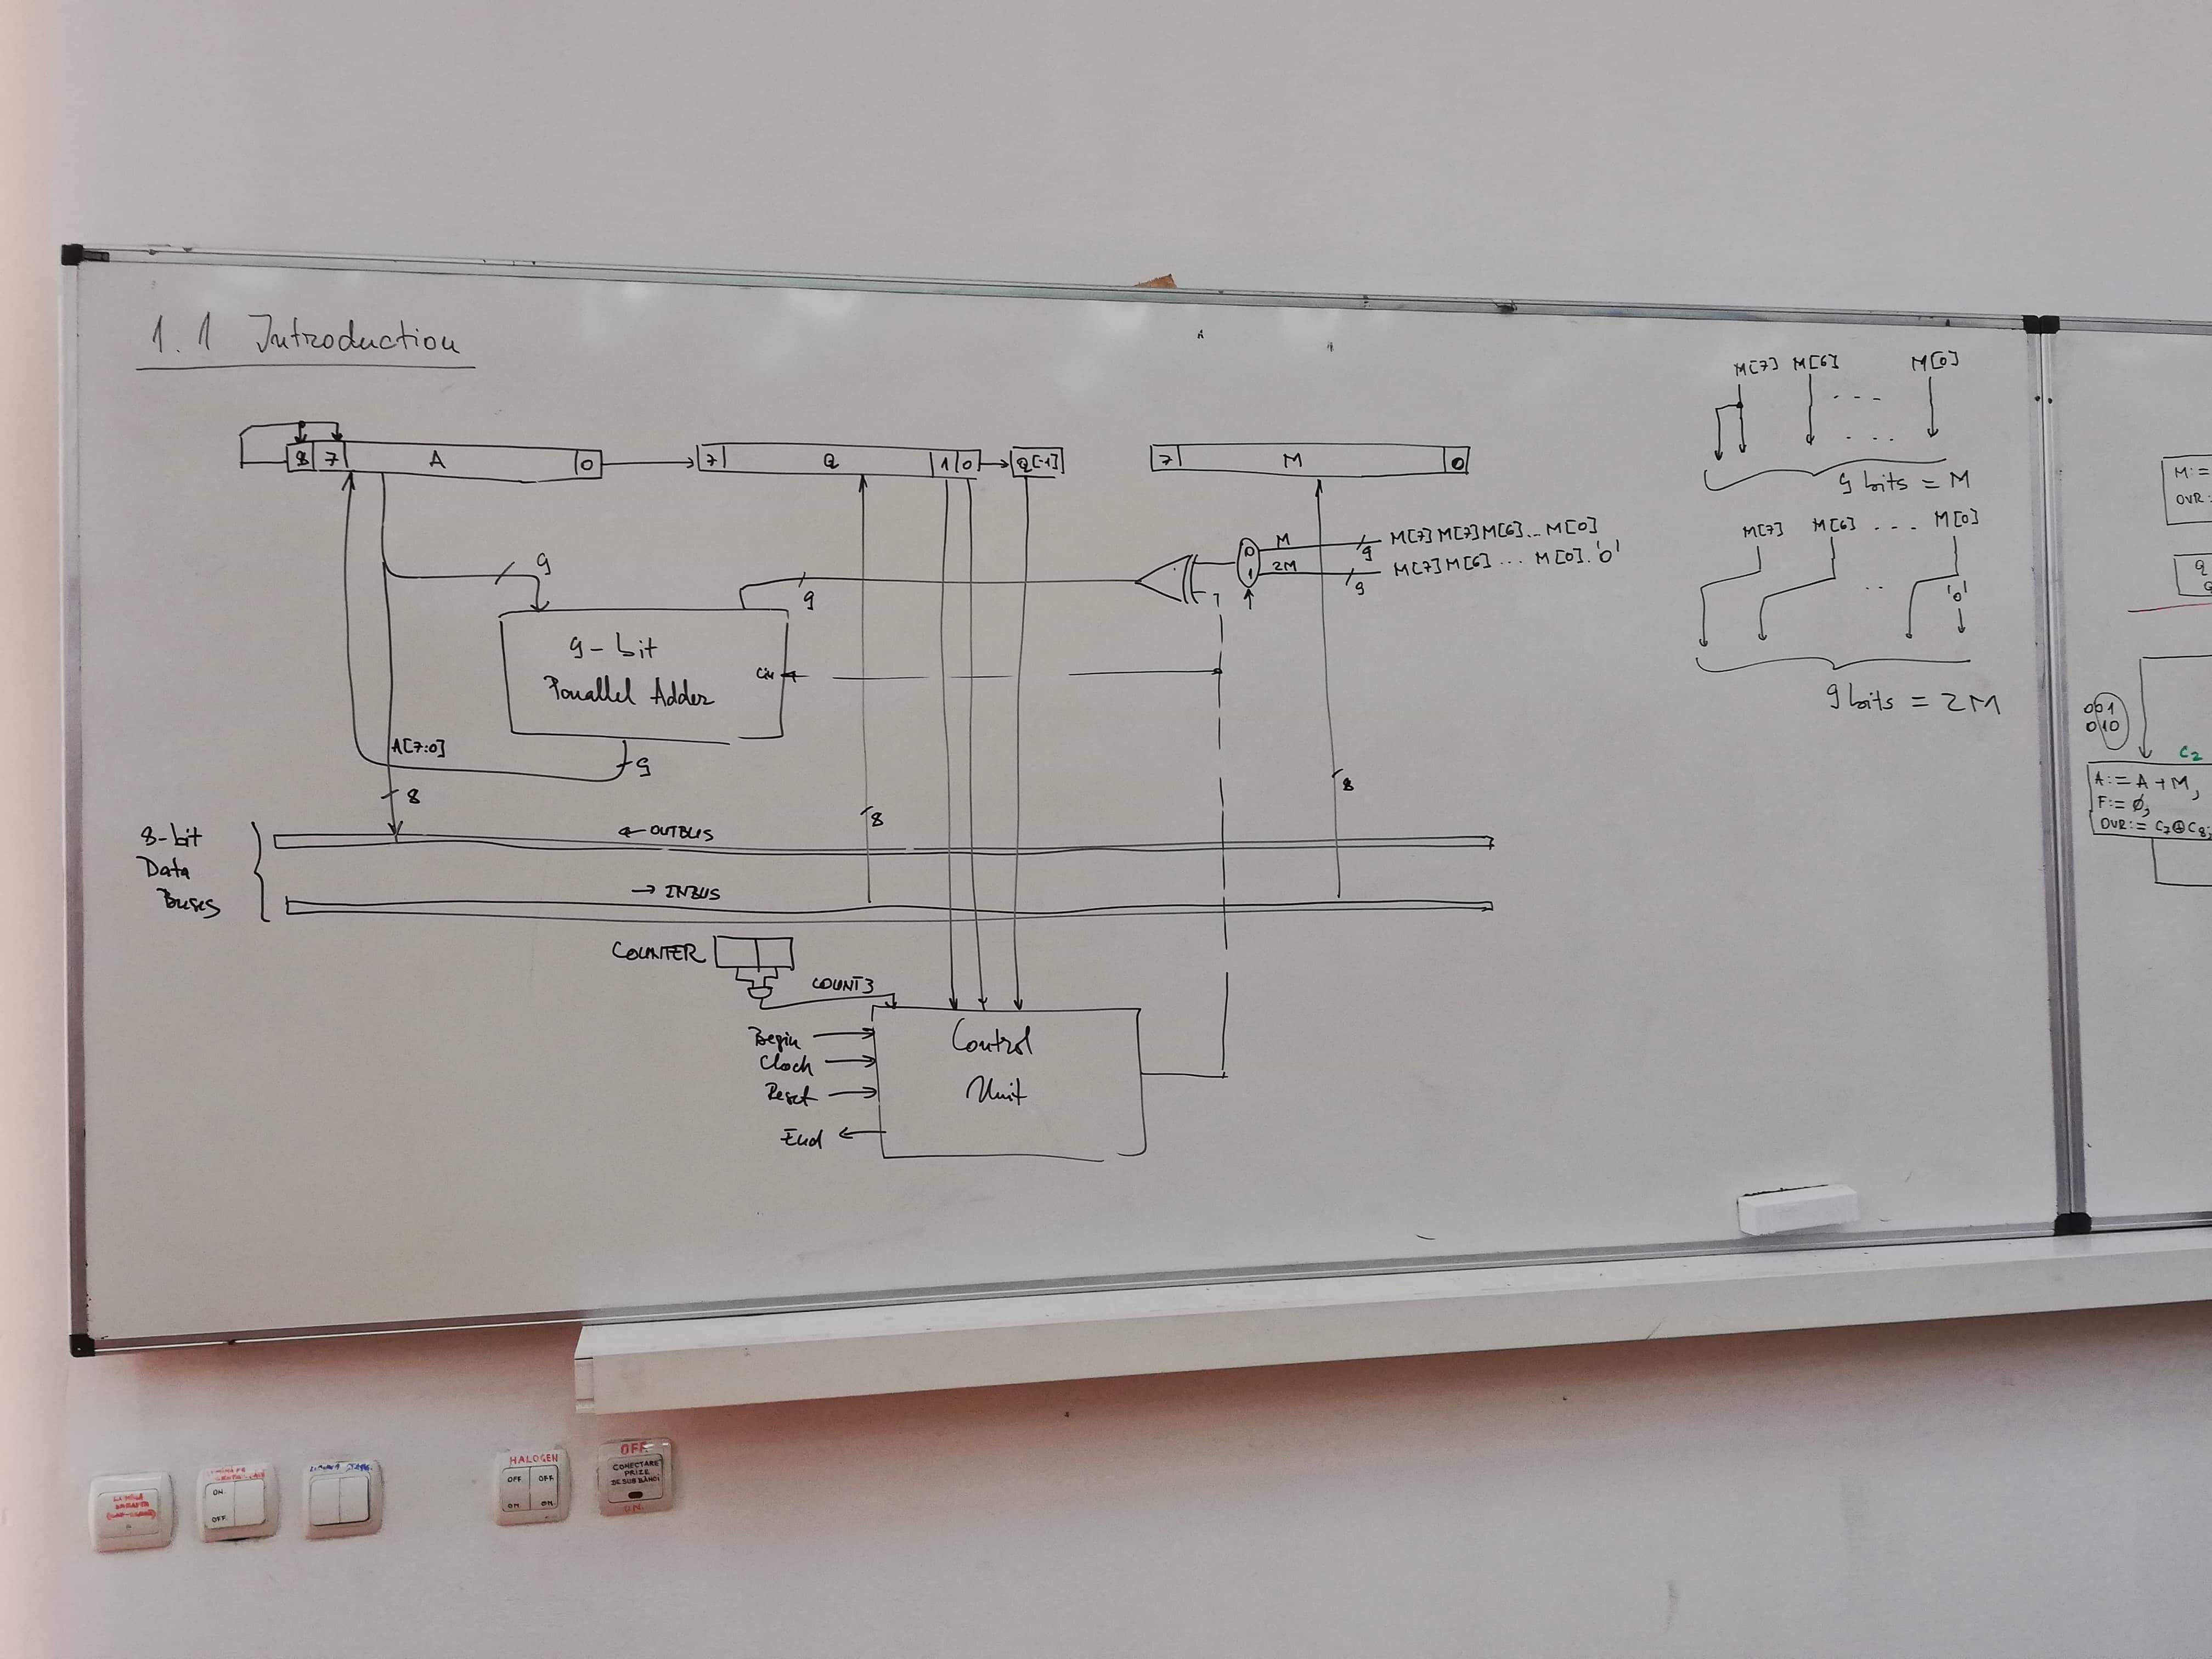 1.1 Introduction
8 7 A 0
7 Q 1 0
Q[-1]
7 M 0
9
9
9-bit
Parallel Adder
Cin
A[7:0]
9
8
8
8
0
1
M
2M
9
9
M[7] M[7] M[6] ... M[0]
M[7] M[6] ... M[0] '0'
8-bit
Data
Buses
← OUTBUS
→ INBUS
COUNTER
COUNT3
Begin
Clock
Reset
End
Control
Unit
M[7] M[6] --- M[0]
...
9 bits = M
M[7] M[6] --- M[0]
.. '0'
9 bits = 2M
M:=
OVR:
Q
001
010
C2
A:= A + M,
F:= Ø,
OVR:= C7⊕C8;
HALOGEN
OFF OFF
ON ON
OFF
CONECTARE
PRIZE
DE SUB BĂNCI
ON
ON
OFF